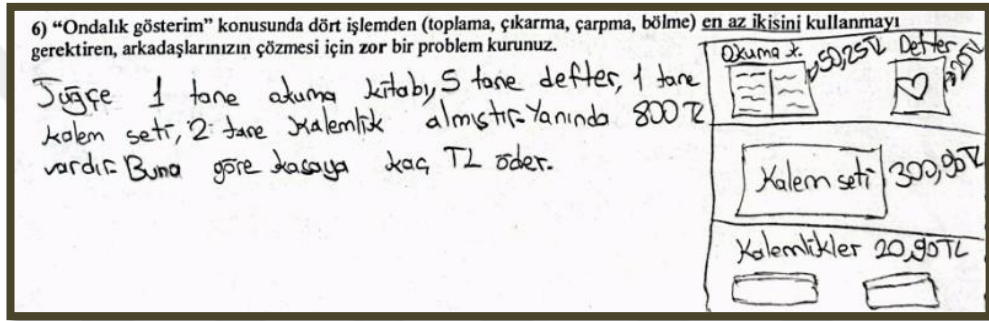 6) “Ondalık gösterim” konusunda dört işlemden (toplama, çıkarma, çarpma, bölme) en az ikisini kullanmayı
gerektiren, arkadaşlarınızın çözmesi için zor bir problem kurunuz.
Tuğçe 1 tane okuma kitabı, 5 tane defter, 1 tane
kalem seti, 2 tane kalemlik almıştır. Yanında 800 TL
vardır. Buna göre kasaya kaç TL öder.
Okuma k. 50,25TL Defter
Kalem seti 300,90TL
Kalemlikler 20,90TL